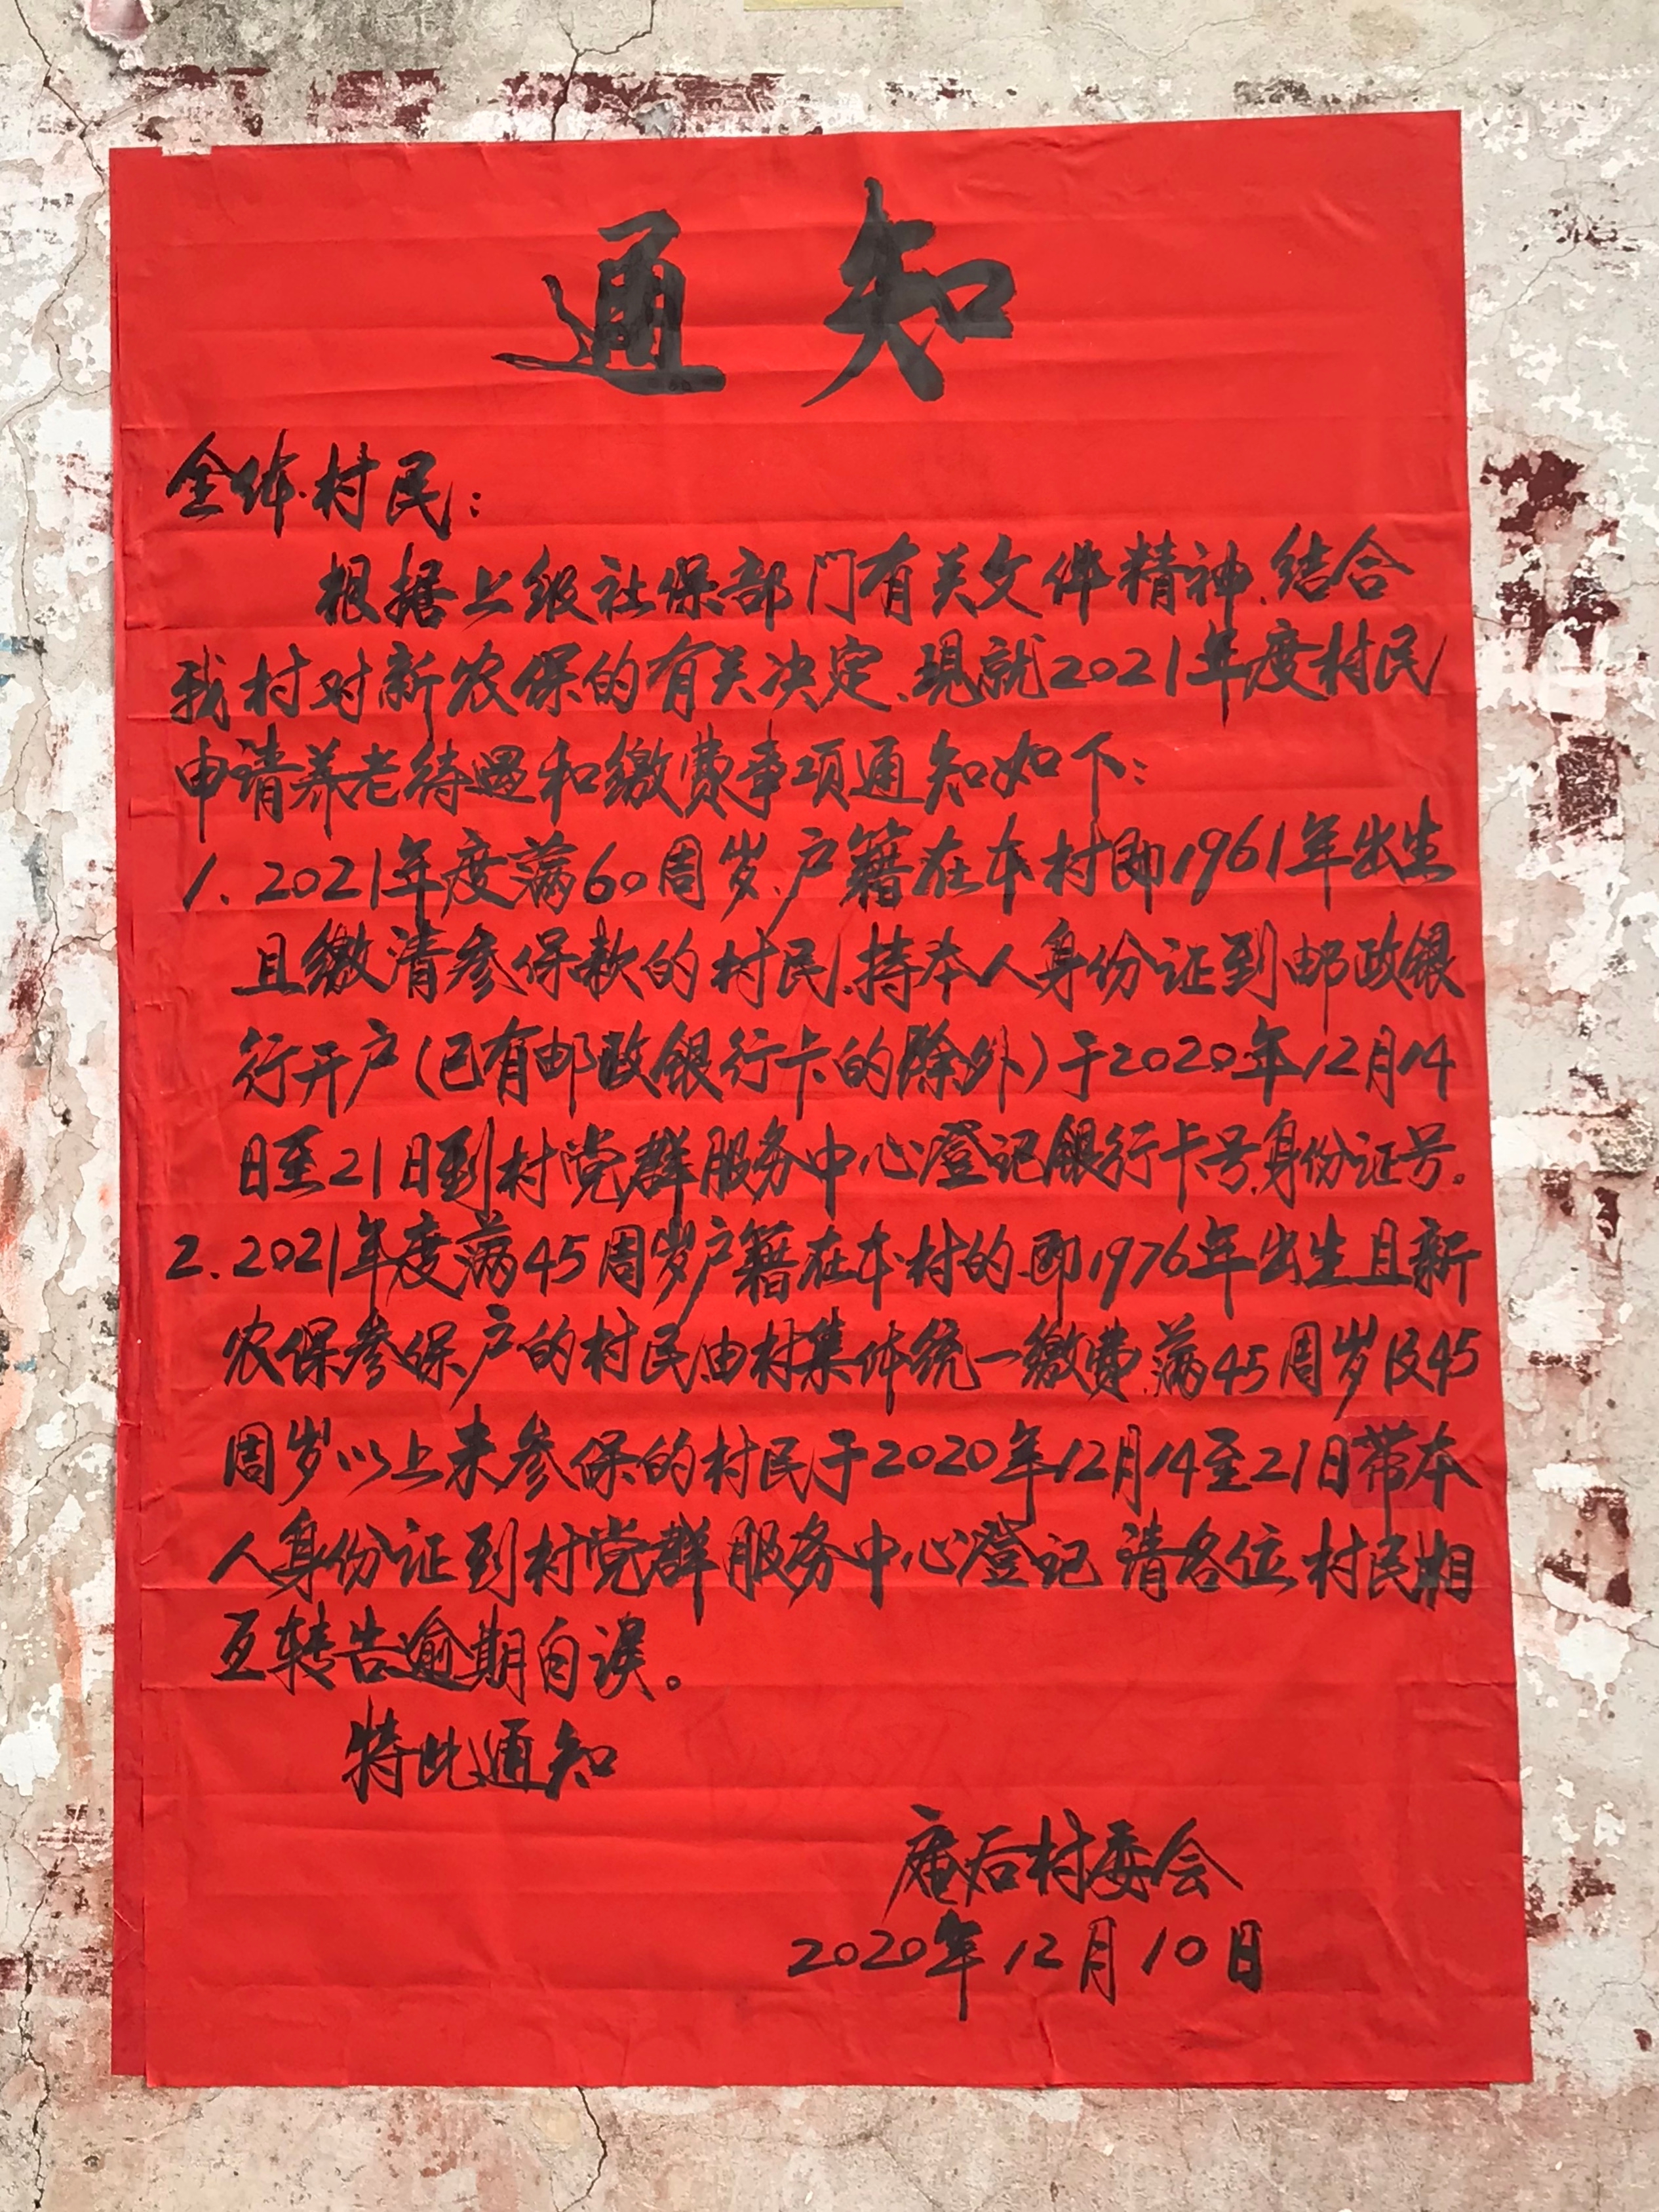 通知
全体村民:
根据上级社保部门有关文件精神、结合
我村对新农保的有关决定、现就2021年度村民
申请养老待遇和缴费事项通知如下:
1.2021年度满60周岁、户籍在本村即1961年出生
且缴清参保款的村民、持本人身份证到邮政银
行开户(已有邮政银行卡的除外)于2020年12月14
日至21日到村党群服务中心登记银行卡号、身份证号。
2.2021年度满45周岁户籍在本村的、即1976年出生且新
农保参保户的村民、由村集体统一缴费、满45周岁及45
周岁以上未参保的村民于2020年12月14至21日带本
人身份证到村党群服务中心登记 请各位村民相
互转告逾期自误。
特此通知
庵后村委会
2020年12月10日